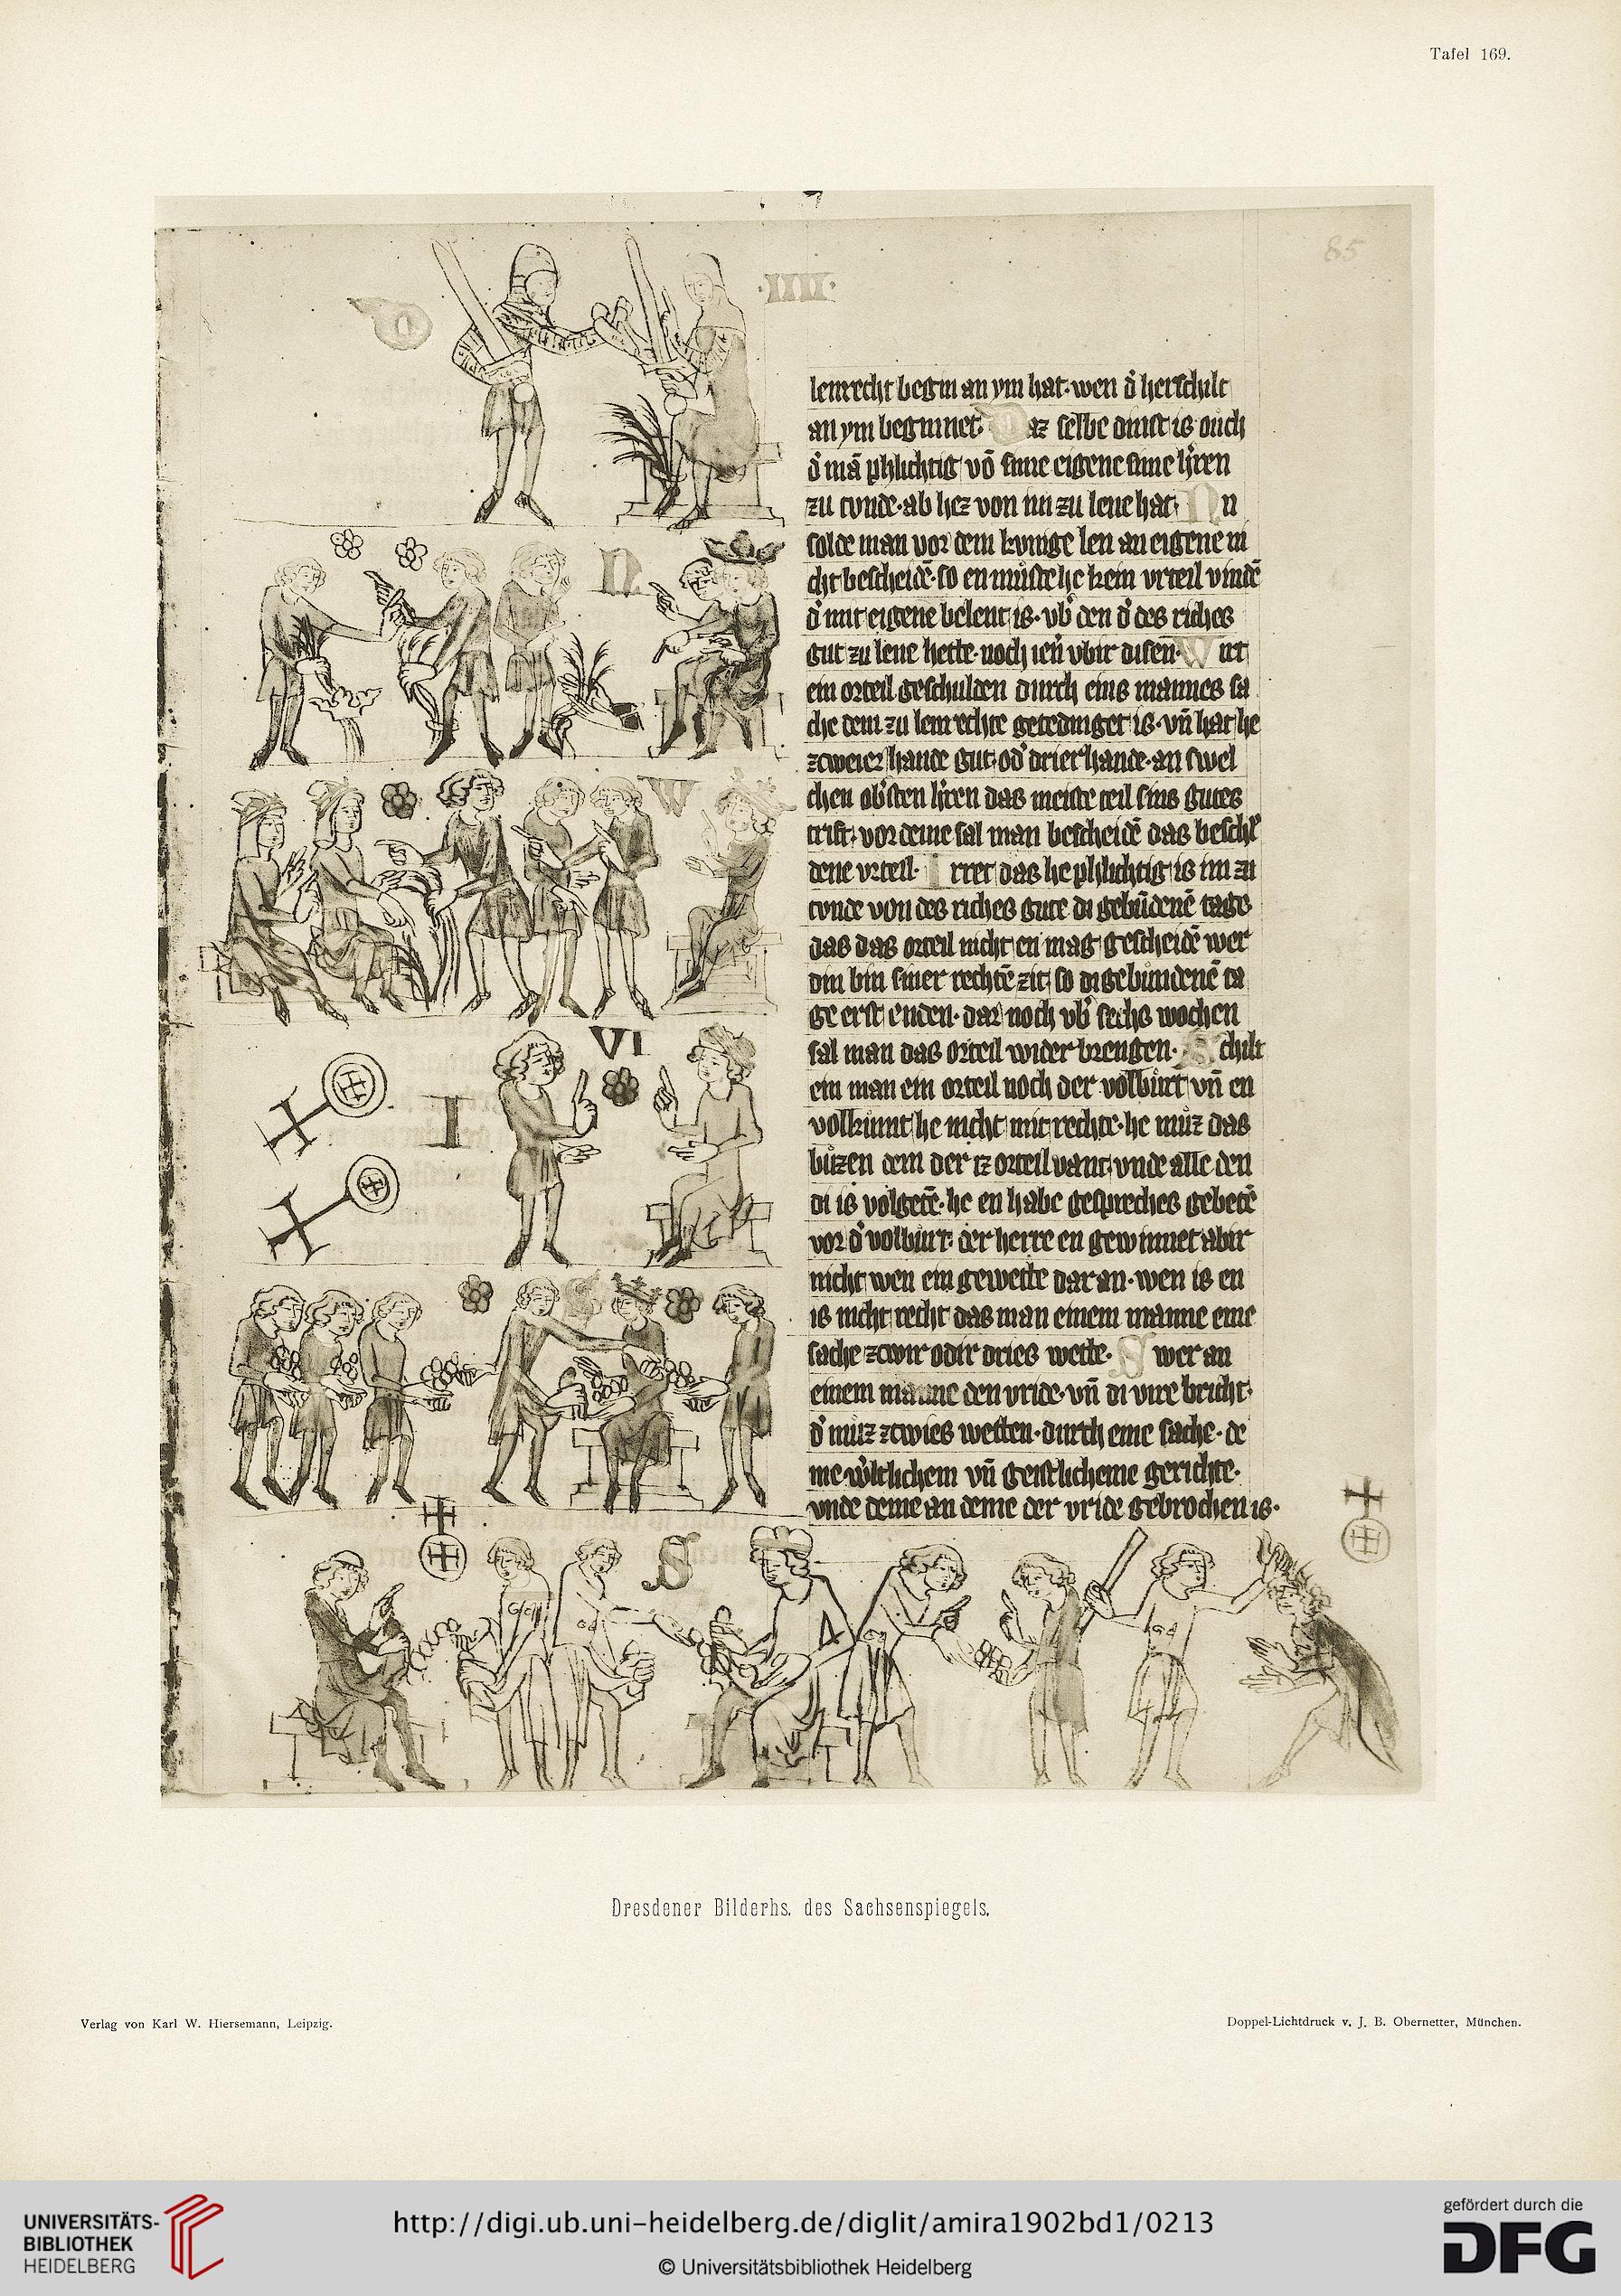 Tafel 169.
85
·IIII·
lenrecht begin an ym hat· wen d' herschilt
an ym beginnet· Daz selbe dinst is ouch
d' mā phlichtig vō sime eigene sime h'ren
zu tvnde· ab hez von im zu lene hat· N n
solde man vor dem kvnige len an eigene ni
cht bescheidē· so en muͦste he kein vrteil vindē
d' mit eigene belent is· vb' den d' des riches
gut zu lene hette· noch ien' vbir disen· Wirt
ein orteil geschulden durch eins mannes sa
che dem zu lenrechte geteidinget is· vn̄ hat he
zcweier hande gut· od' drier hande· an swel
chen ob'sten h'ren das meiste teil sins gutes
trift· vor deme sal man bescheidē das beschl'
dene vrteil· Irret das he phlichtig is im zu
tvnde von des riches gute di gebūdenē tage
das das orteil nicht en mag gescheidē wer
din bin siner rechtē zit· so di gebundenē ta
ge erst enden· dar noch vb' sechs wochen
sal man das orteil wider brengen· Schilt
ein man ein orteil noch der volbuͦrt vn̄ en
volkuͦmt he nicht mit rechte· he muͦz das
buͦzen dem der iz orteil vant· vnde alle den
di is volgetē· he en habe gespreches gebetē
vor d' volbuͦrt· der herre en gewinnet abir
nicht wen ein gewette dar an· wen is en
is nicht recht das man einem manne eine
sache zcwir odir dries wette· Swer an
einem manne den vride· vn̄ di vire bricht·
d' muͦz zcwies wetten· durch eine sache· de
me w'ltlichem vn̄ geistlicheme gerichte·
vnde deme an deme der vride gebrochen is·
D
N
W
VI
I
S
S
Dresdener Bilderhs. des Sachsenspiegels.
Verlag von Karl W. Hiersemann, Leipzig.
Doppel-Lichtdruck v. J. B. Obernetter, München.
UNIVERSITÄTS-
BIBLIOTHEK
HEIDELBERG
http://digi.ub.uni-heidelberg.de/diglit/amira1902bd1/0213
© Universitätsbibliothek Heidelberg
gefördert durch die
DFG